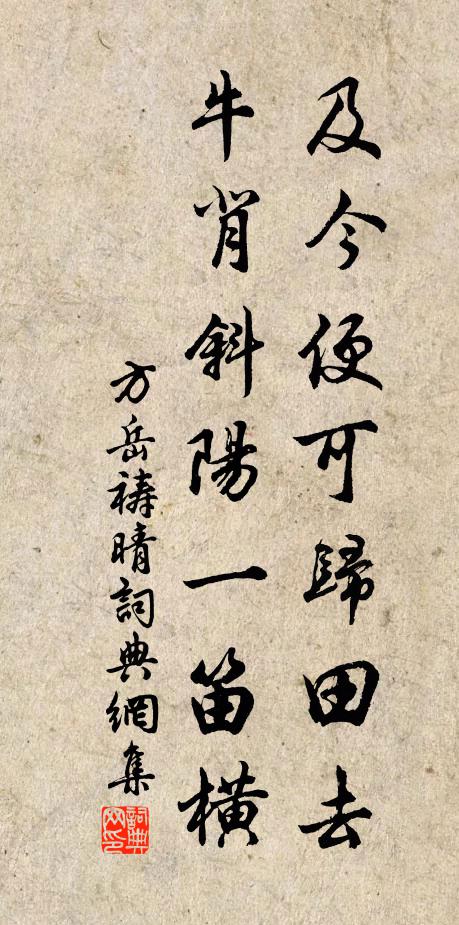 及今便可歸田去
牛背斜陽一笛橫
方岳禱晴詞典網集
詞典網印